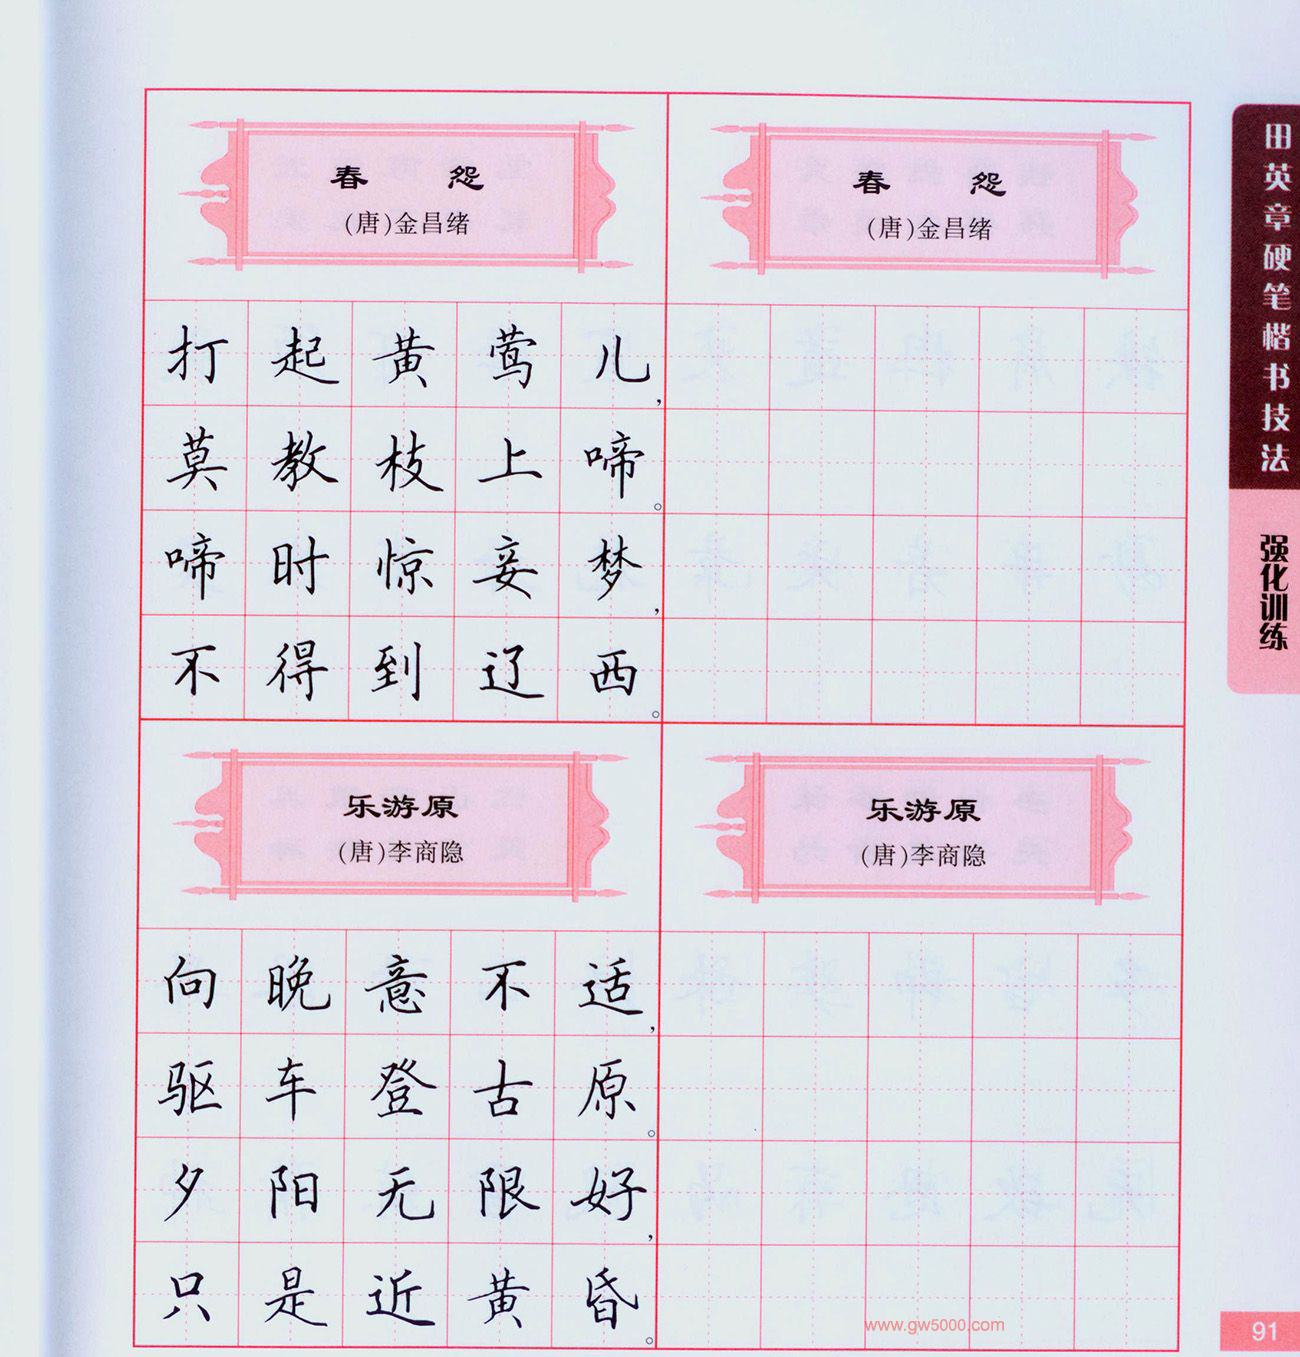 春 怨
(唐)金昌绪
打起黄莺儿,
莫教枝上啼。
啼时惊妾梦,
不得到辽西。
春 怨
(唐)金昌绪
乐游原
(唐)李商隐
向晚意不适,
驱车登古原。
夕阳无限好,
只是近黄昏。
乐游原
(唐)李商隐
田英章硬笔楷书技法
强化训练
www.gw5000.com
91